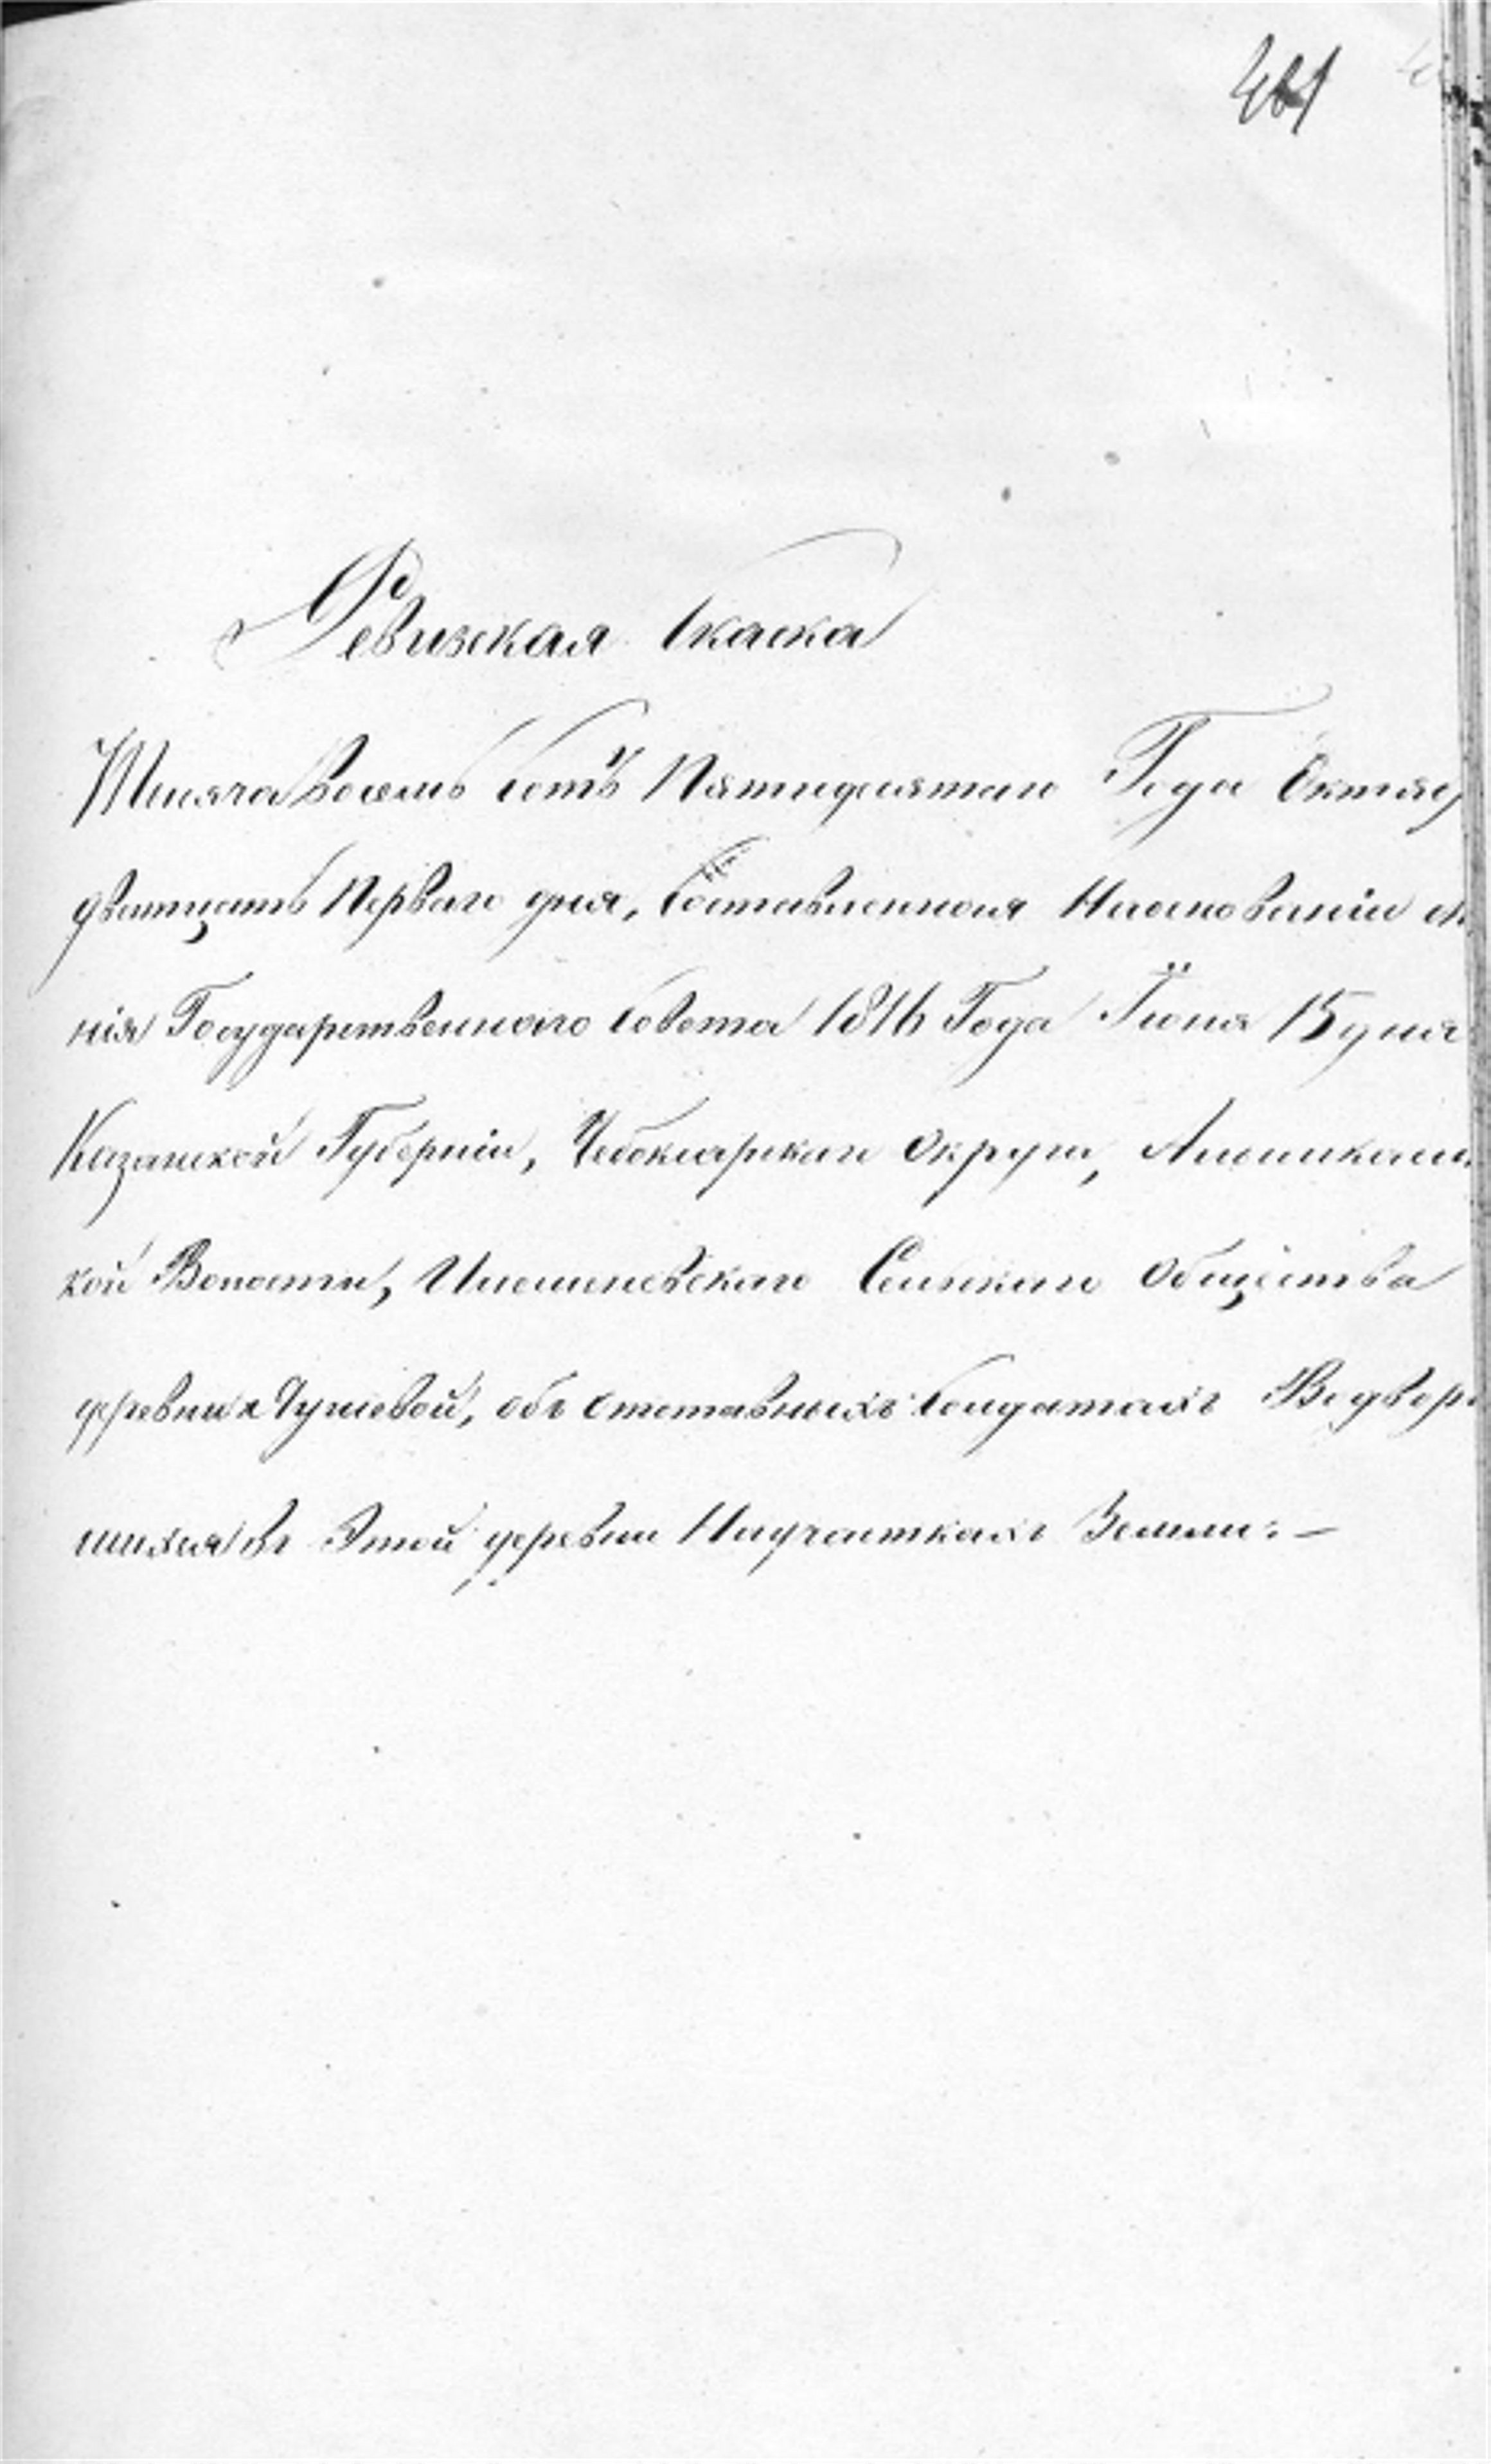 461
Ревизская Скаска
Тысяча Восемь Сотъ Пятидесятаго Года Октяб
дватцать Перваго дня, Составленная Наосновании мн
нія Государственнаго Совета 1816 Года Іюня 15 дня
Казанской Губерніи, Чебоксарскаго Округа,
кой Волости, Сельскаго Общества
деревни объ Отставныхъ Солдатахъ Водвор
шихся въ Этой деревни Научасткахъ Земли: —